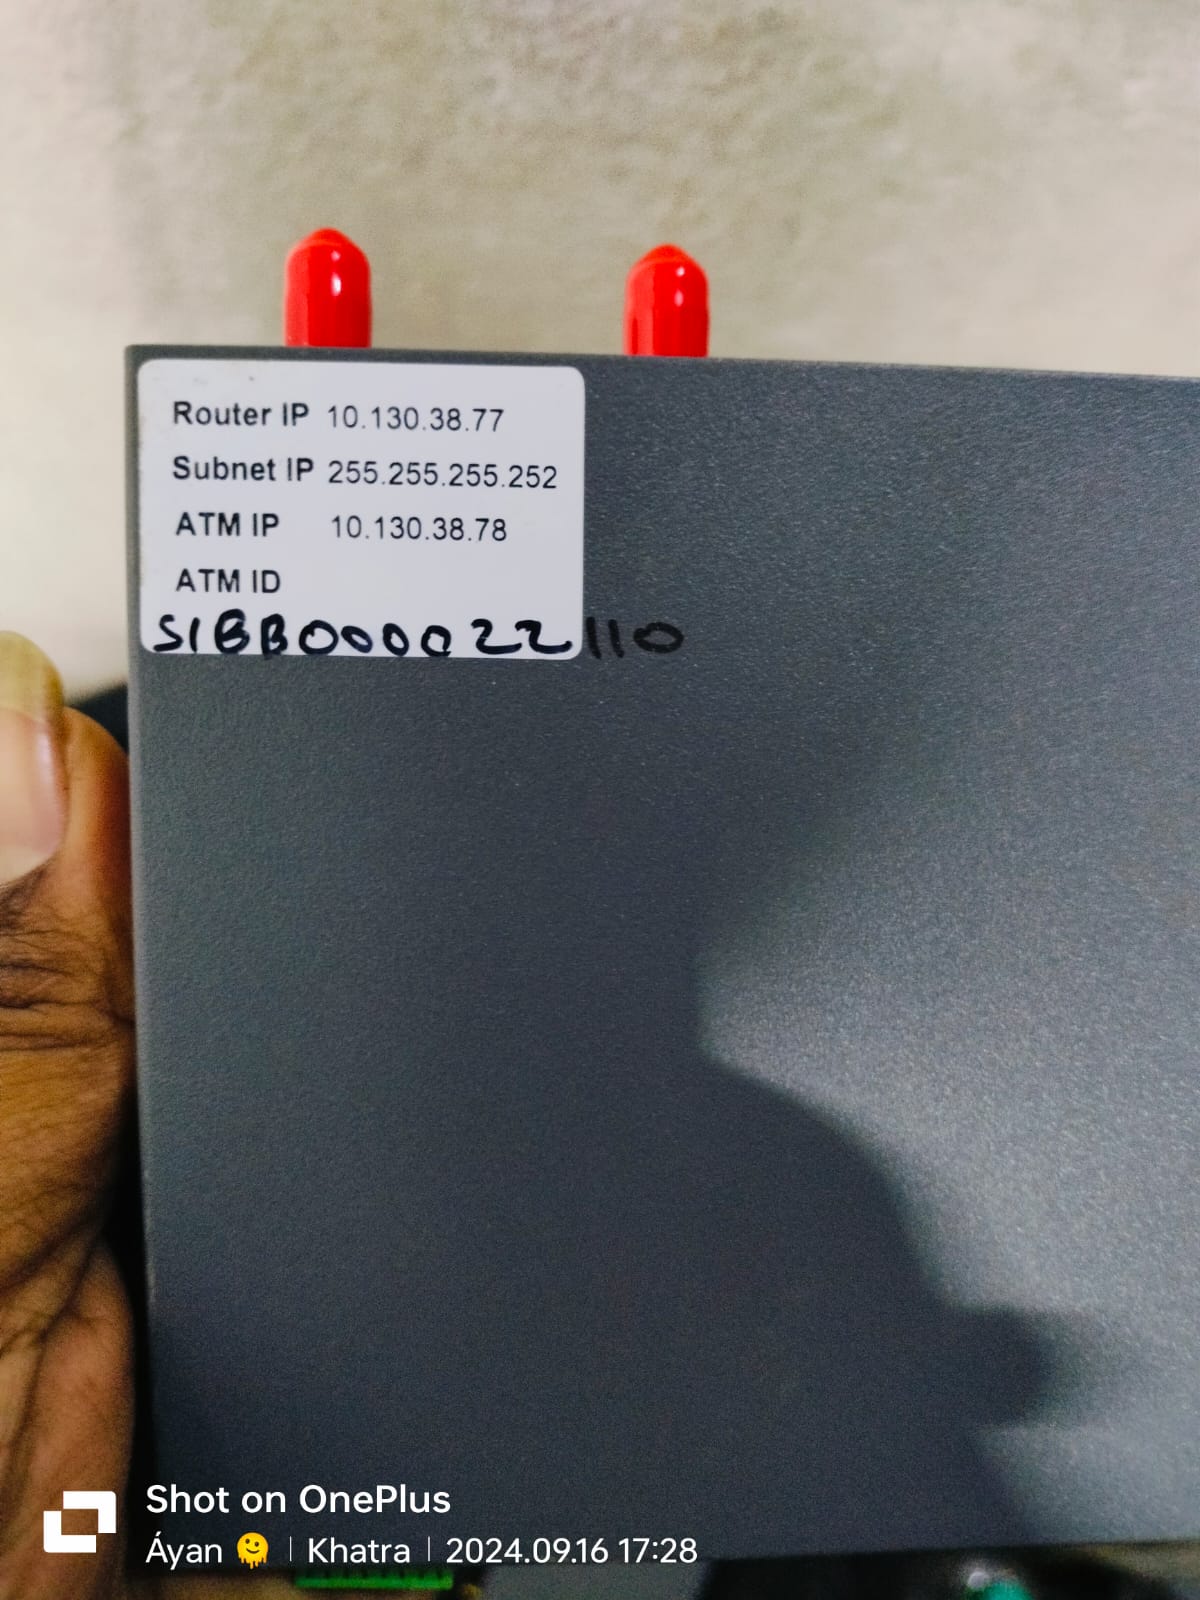 Router IP 10.130.38.77
Subnet IP 255.255.255.252
ATM IP 10.130.38.78
ATM ID
S1BB000022110
Shot on OnePlus
Áyan 🫠 | Khatra | 2024.09.16 17:28